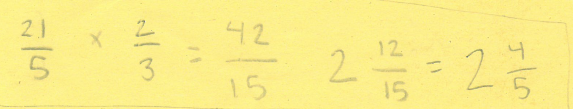 21/5 × 2/3 = 42/15 2 12/15 = 2 4/5